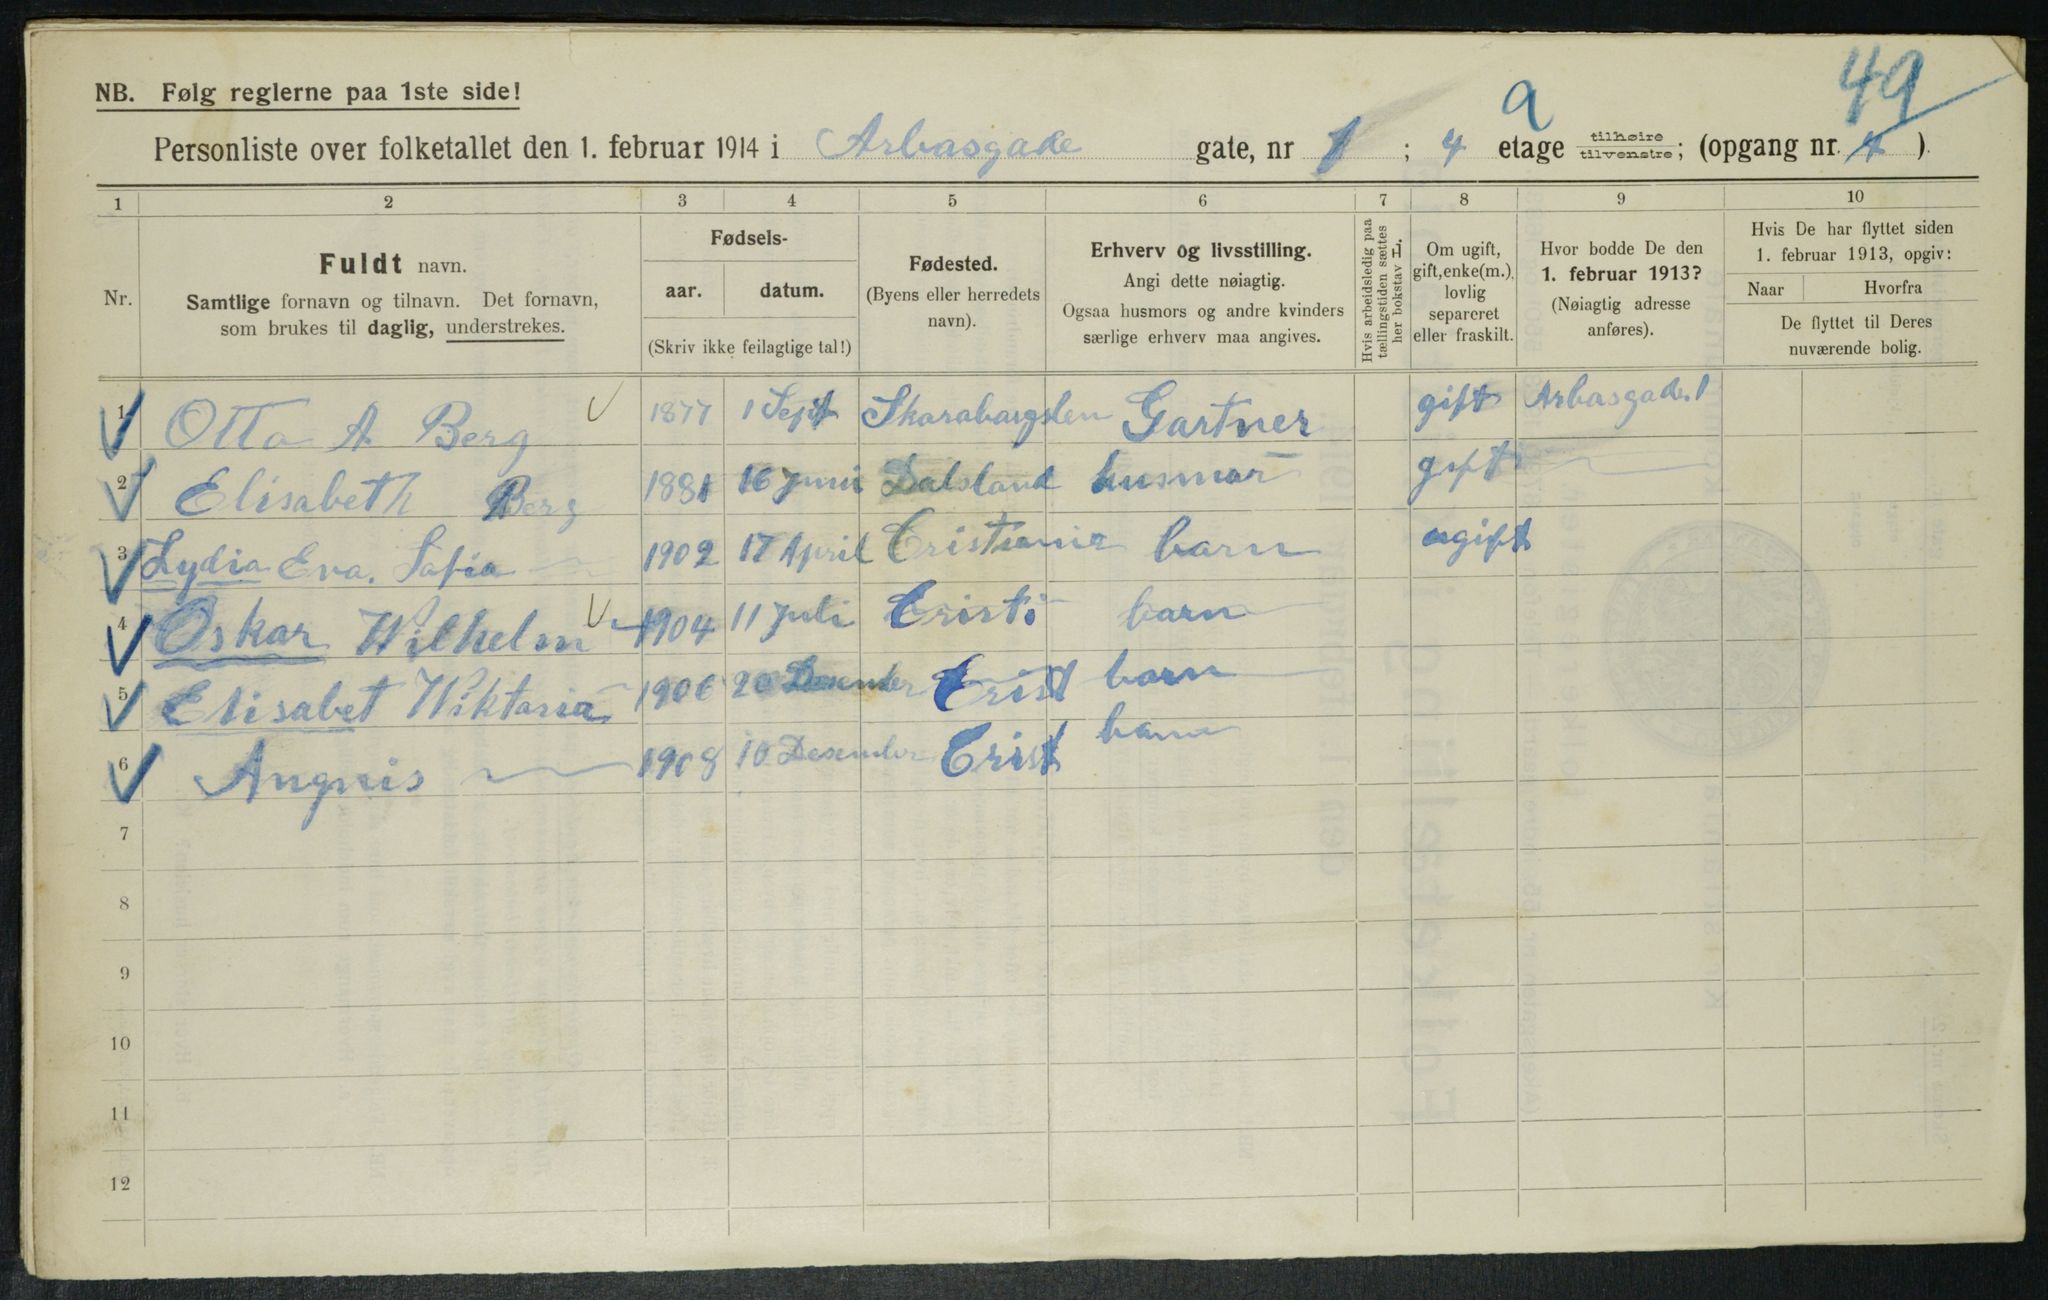 49
a
NB. Følg reglerne paa 1ste side!
Personliste over folketallet den 1. februar 1914 i Arbasgade gate, nr 1 ; 4 etage tilhøire tilvenstre; (opgang nr. 1 ).
1 2 3 4 5 6 7 8 9 10
Nr.
Fuldt navn.
Samtlige fornavn og tilnavn. Det fornavn,
som brukes til daglig, understrekes.
Fødsels-
aar. datum.
(Skriv ikke feilagtige tal!)
Fødested.
(Byens eller herredets
navn).
Erhverv og livsstilling.
Angi dette nøiagtig.
Ogsaa husmors og andre kvinders
særlige erhverv maa angives.
Hvis arbeidsledig paa
tællingstiden sættes
her bokstav L.
Om ugift,
gift, enke(m.),
lovlig
separeret
eller fraskilt.
Hvor bodde De den
1. februar 1913?
(Nøiagtig adresse
anføres).
Hvis De har flyttet siden
1. februar 1913, opgiv:
Naar Hvorfra
De flyttet til Deres
nuværende bolig.
1 Otto A Berg 1877 1 Sept Gartner gift Arbasgade 1
2 Elisabeth Berg 1881 16 Juni Dalsland husmor gift
3 Lydia Eva. Sofia 1902 17 April Cristiania barn ugift
4 Oskar Wilhelm 1904 11 Juli Cristi barn
5 Elisabet Wiktoria 1906 20 Desember Crist barn
6 Angnis 1908 10 Desember Crist barn
7
8
9
10
11
12